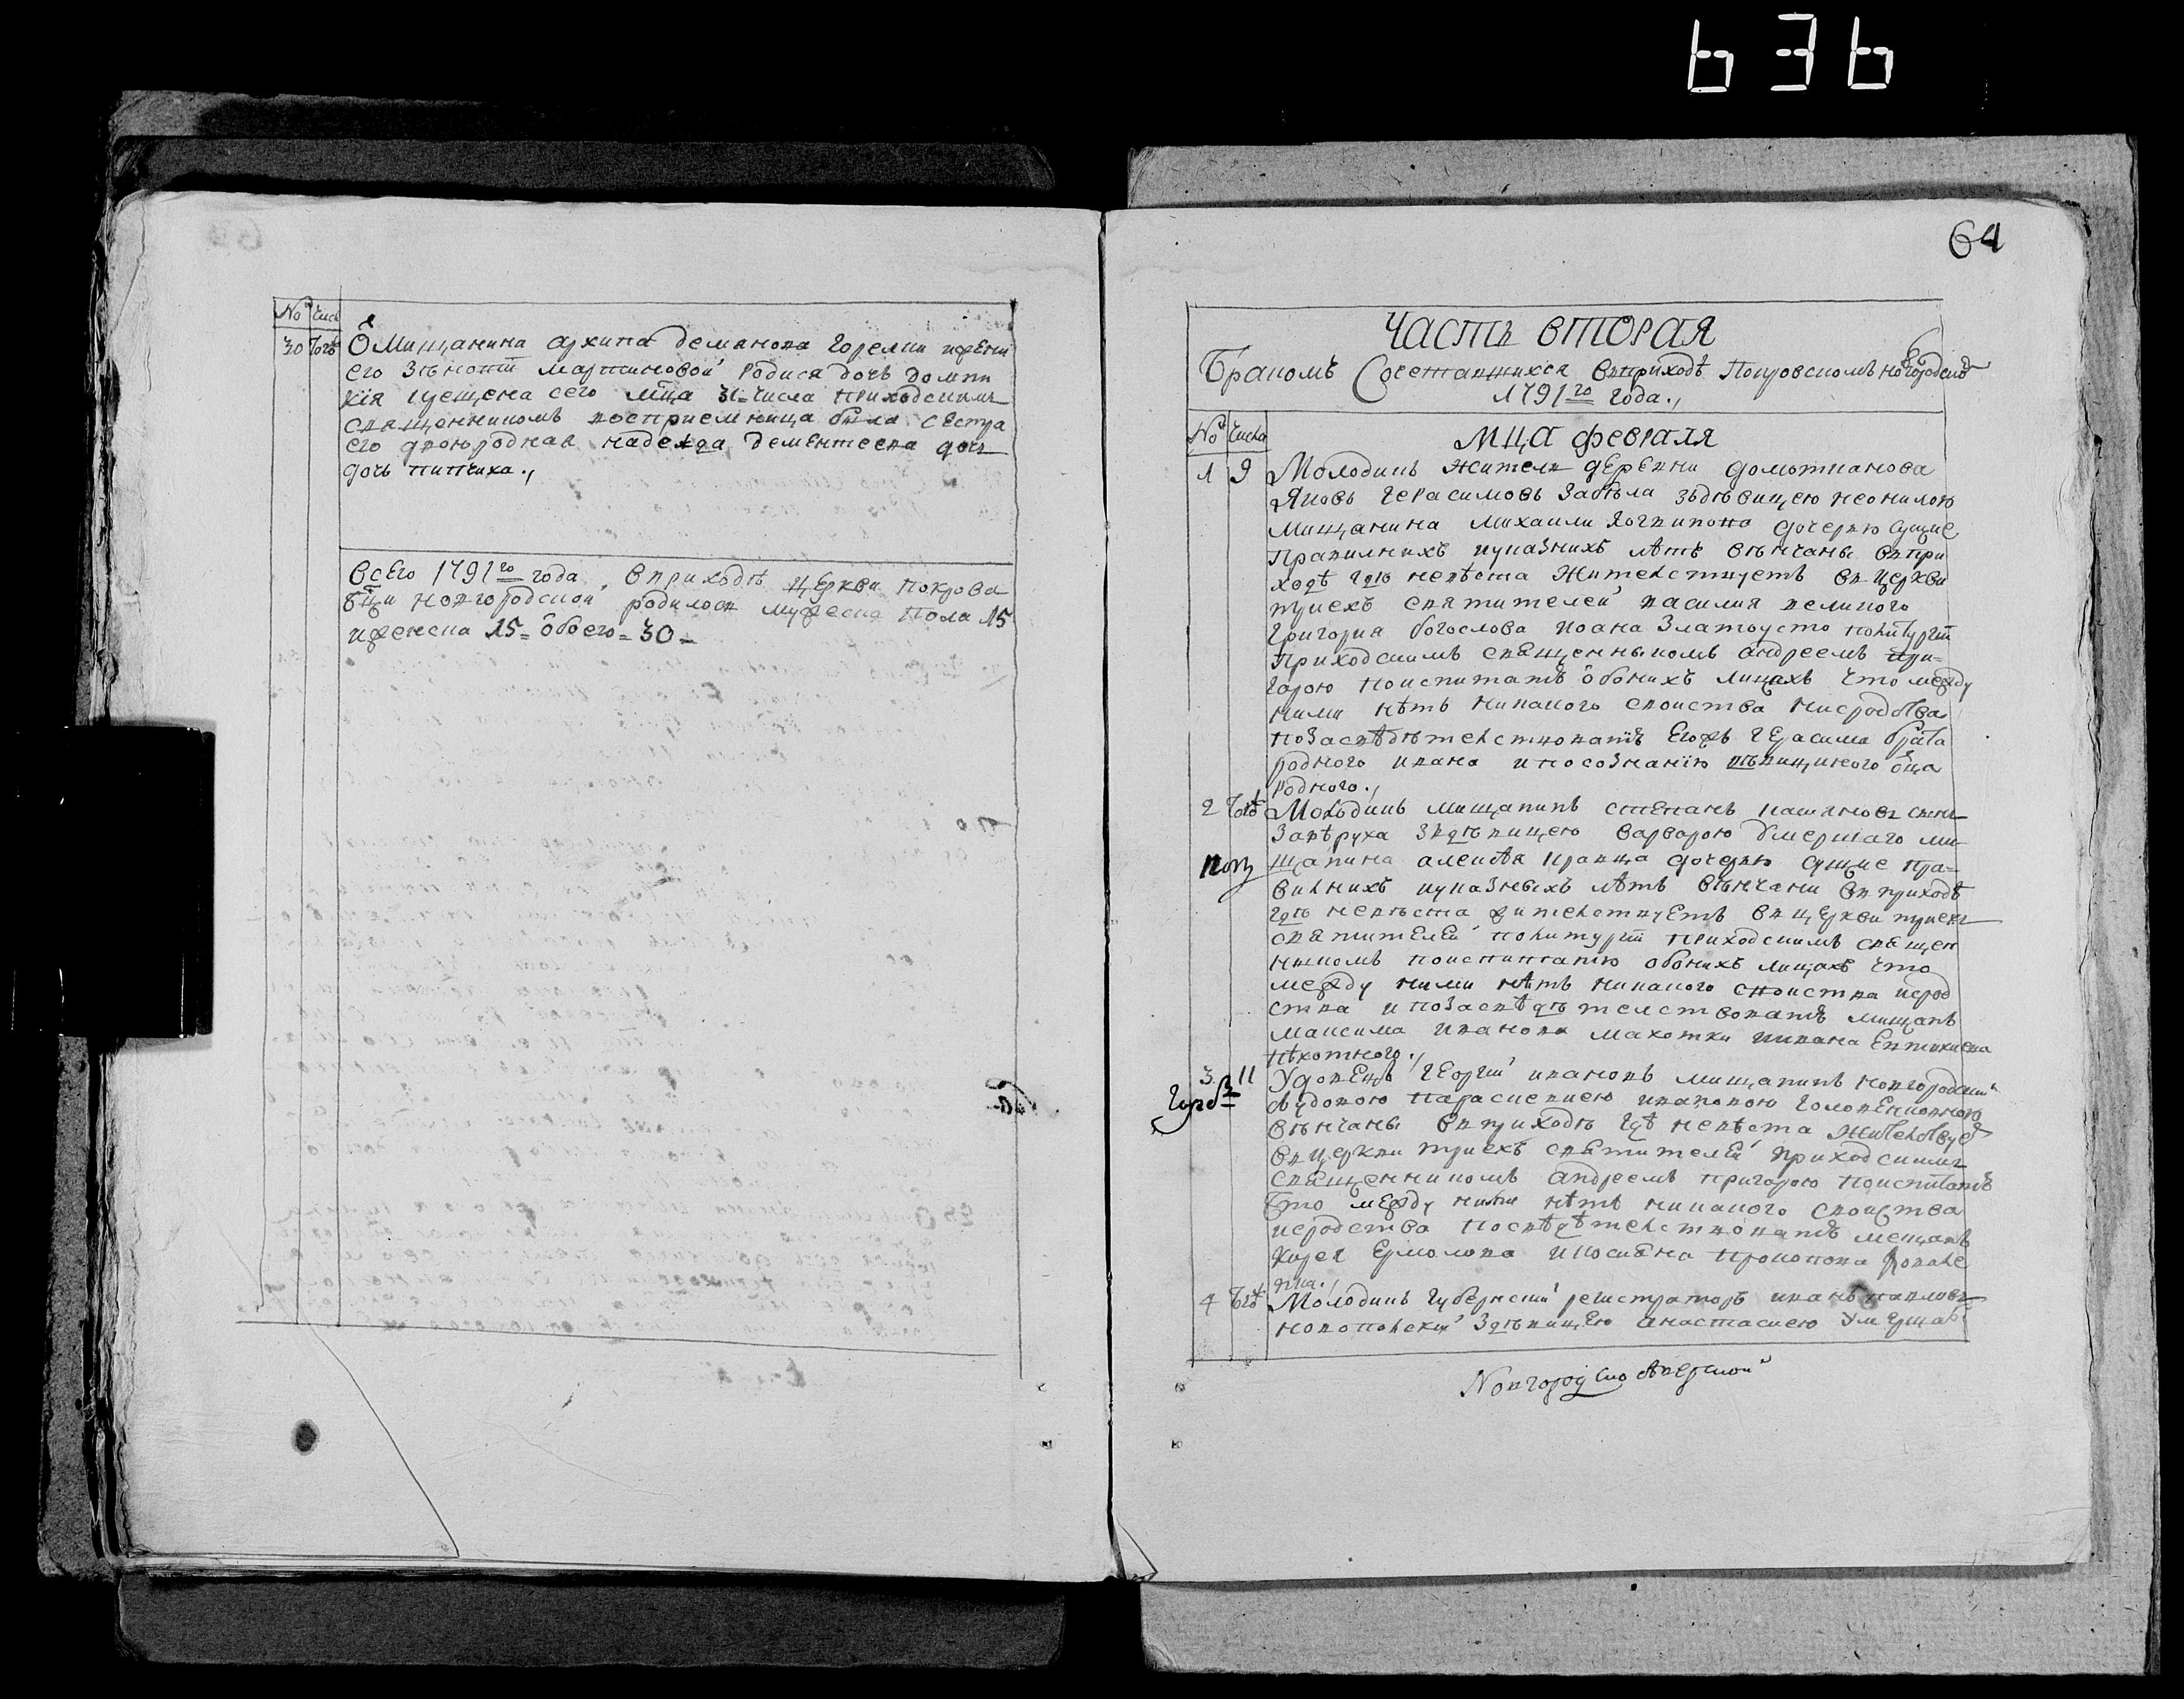 636
64
№ Числ
30 Тогѡ У Мищанина архипа демянова Горелки иженi
его Зѣновiи Мартиновой родися дочь домни
кiя крещена сего мца 31-числа приходским
священником восприемница била Сестра
его двоюродная надежда Дементеева дочь
дочь
всего 1791го года вприходѣ Церкви покрова
бци новгородской родилося мужеска пола 15
иженска 15= обоего= 30-
ЧАСТЬ ВТОРАЯ
Бракомъ Сочетавшихся вприходѣ Покровскомъ новгородско
1791го года.,
№ Числа
Мца февраля
1 9 Молодикъ жители деревни домотканова
Яковъ Герасимовъ Забѣла здѣвицею неонилою
Мищанина михаили дочерю сущие
Правилнихъ иуказнихъ лѣтъ вѣнчаны впри
ходѣ гдѣ невѣста жителствуетъ вцеркви
триехъ святителей василия великого
Григория богослова иоана Златоусто политургiи
приходским священыком андреемъ при-
гарою поиспитатѣ обоихъ лицахъ что между
ними нѣтъ никакого своиства нисродства
позасвѣдѣтелствованiѣ Егожъ Герасима брата
родного ивана ипосознанiю дѣвицикого оца
родного.,
2 Тогѡ Молодикъ мищанинъ стеѳанъ синъ
Завѣруха здѣвицею варварою умершаго ми-
щанина алексѣя кравца дочерю сущие пра-
вилнихъ иуказныхъ лѣтъ вѣнчани вприходѣ
гдѣ невѣста жителствуетъ вцеркви триехъ
святителей политургiи приходским священ
никомъ поиспитанiю обоихъ лицахъ что
между ними нѣтъ никакого своиства ирод
ства ипозасвѣдѣтелствованiѣ мищанъ
максима иванова махотки иивана Евтихиева
пѣхотного.,
3 11 Удовецъ Георгiй ивановъ мищанинъ новгородскiй
здовою параскевиею ивановою
вѣнчаны вприходѣ гдѣ невѣста жителствуе
вцеркви триехъ святителей приходским
священникомъ андреемъ пригарою поиспитанiѣ
что между ними нѣтъ никакого своиства
иродства посвѣдѣтелствованiѣ мещанъ
Кирея Ермолова ипрокопа Ковале
вка.,
4 Тогѡ Молодикъ Губернскiй регистраторъ иванъ павловъ
новополскiй здѣвицею анастасиею умерша